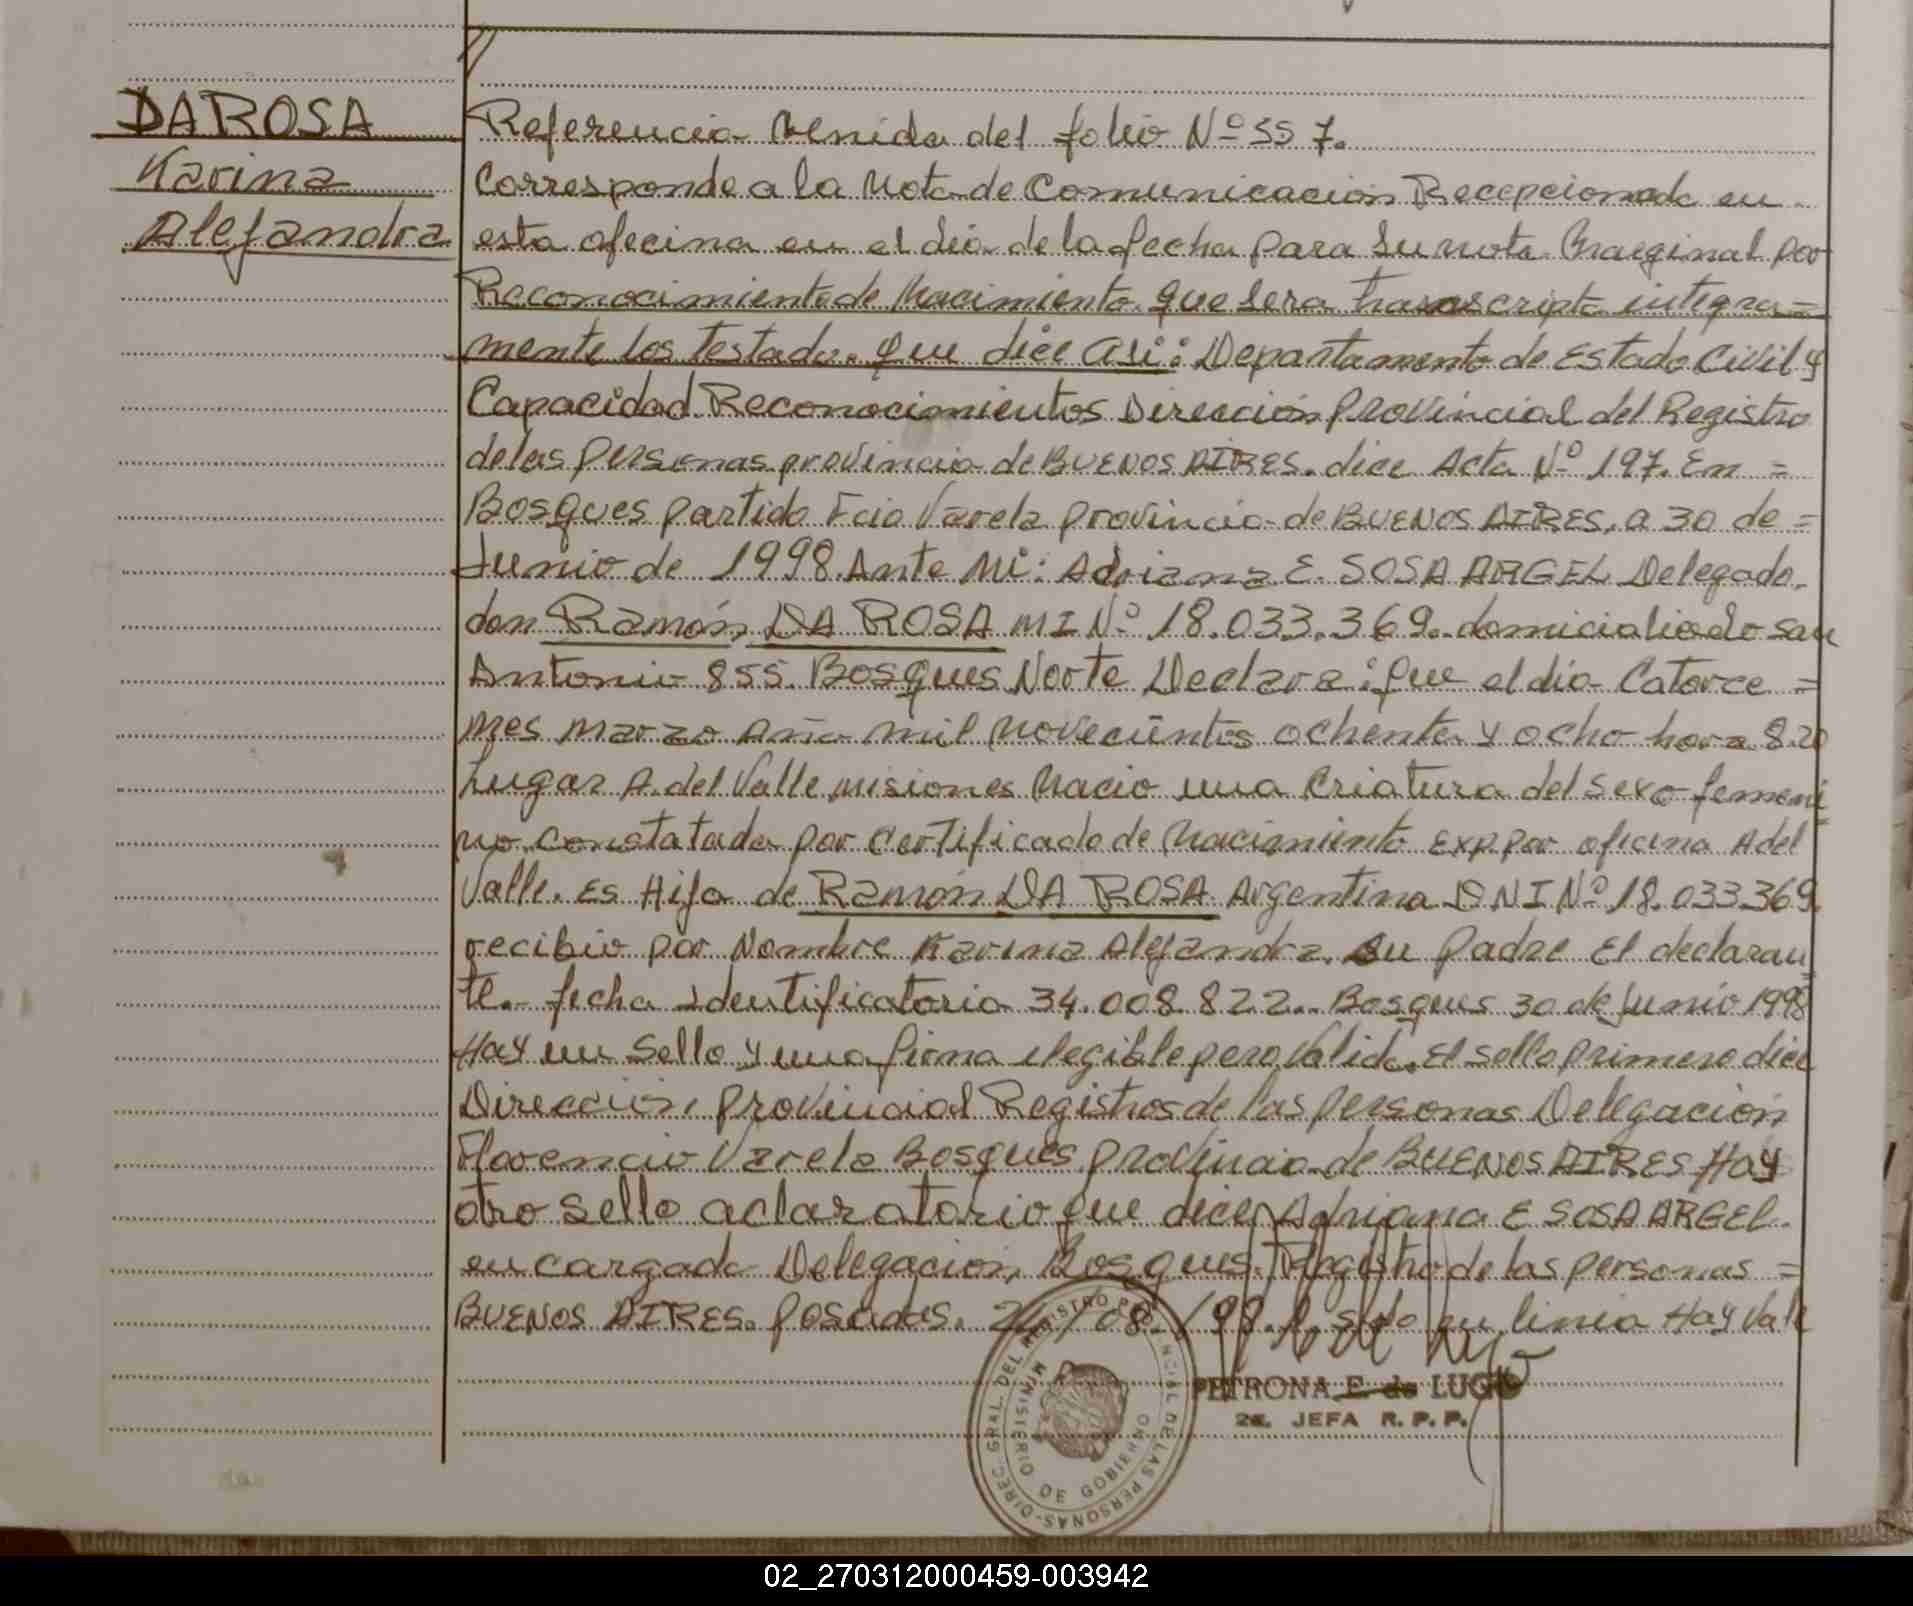 DA ROSA
Karina
Alejandra
Referencia Venida del folio Nº 557.
Corresponde a la Nota de Comunicacion Recepcionada en
esta oficina en el dia de la fecha para su nota Marginal por
Reconocimiento de Nacimiento que sera transcripto integra=
mente los testado. que dice asi: Departamento de Estado Civil y
Capacidad Reconocimientos Direccion Provincial del Registro
de las Personas provincia de BUENOS AIRES. dice Acta Nº 197. En =
Bosques partido Fcio Varela provincia de BUENOS AIRES, a 30 de =
Junio de 1998. Ante Mi: Adriana E. SOSA ARGEL Delegada.
don Ramón DA ROSA MI Nº 18.033.369. domicialiado San
Antonio 855. Bosques Norte Declara: que el dia Catorce =
mes marzo Año mil novecientos ochenta y ocho hora 8.20
Lugar A. del Valle Misiones Nacio una Criatura del sexo femeni
no constatada por Certificado de Nacimiento Exp por oficina A del
Valle. Es Hija de Ramón DA ROSA Argentina DNI Nº 18.033369.
recibio por Nombre Karina Alejandra. su Padre El declaran
te.- fecha identificatoria 34.008.822.. Bosques 30 de Junio 1998
Hay un Sello y una firma elegible pero Valida. El sello primero dice
Direccion, Provincial Registros de las personas Delegacion
Florencio Varela Bosques provincia de BUENOS AIRES Hay
otro sello aclaratorio que dice Adriana E SOSA ARGEL.
encargada Delegacion, Bosques. Registro de las personas =
BUENOS AIRES. Posadas. /08/98. en linia Hay Vale
PETRONA E. de LUGO
2a. JEFA R. P. P.
DIREC. GRAL. DEL REGISTRO PROVINCIAL DE LAS PERSONAS-
MINISTERIO DE GOBIERNO
02_270312000459-003942